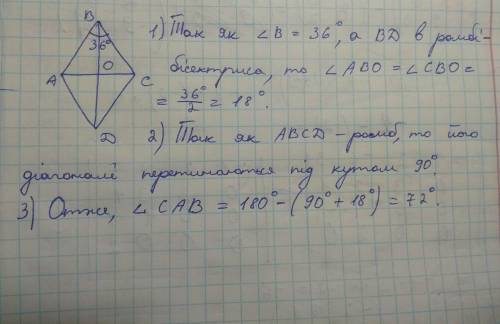 B
36°
O
A
C
D
1) Так як ∠B = 36°, а BD в ромбі -
бісектриса, то ∠ABO = ∠CBO =
= 36°/2 = 18°.
2) Так як ABCD – ромб, то його
діагоналі перетинаються під кутом 90°.
3) Отже, ∠CAB = 180° – (90° + 18°) = 72°.